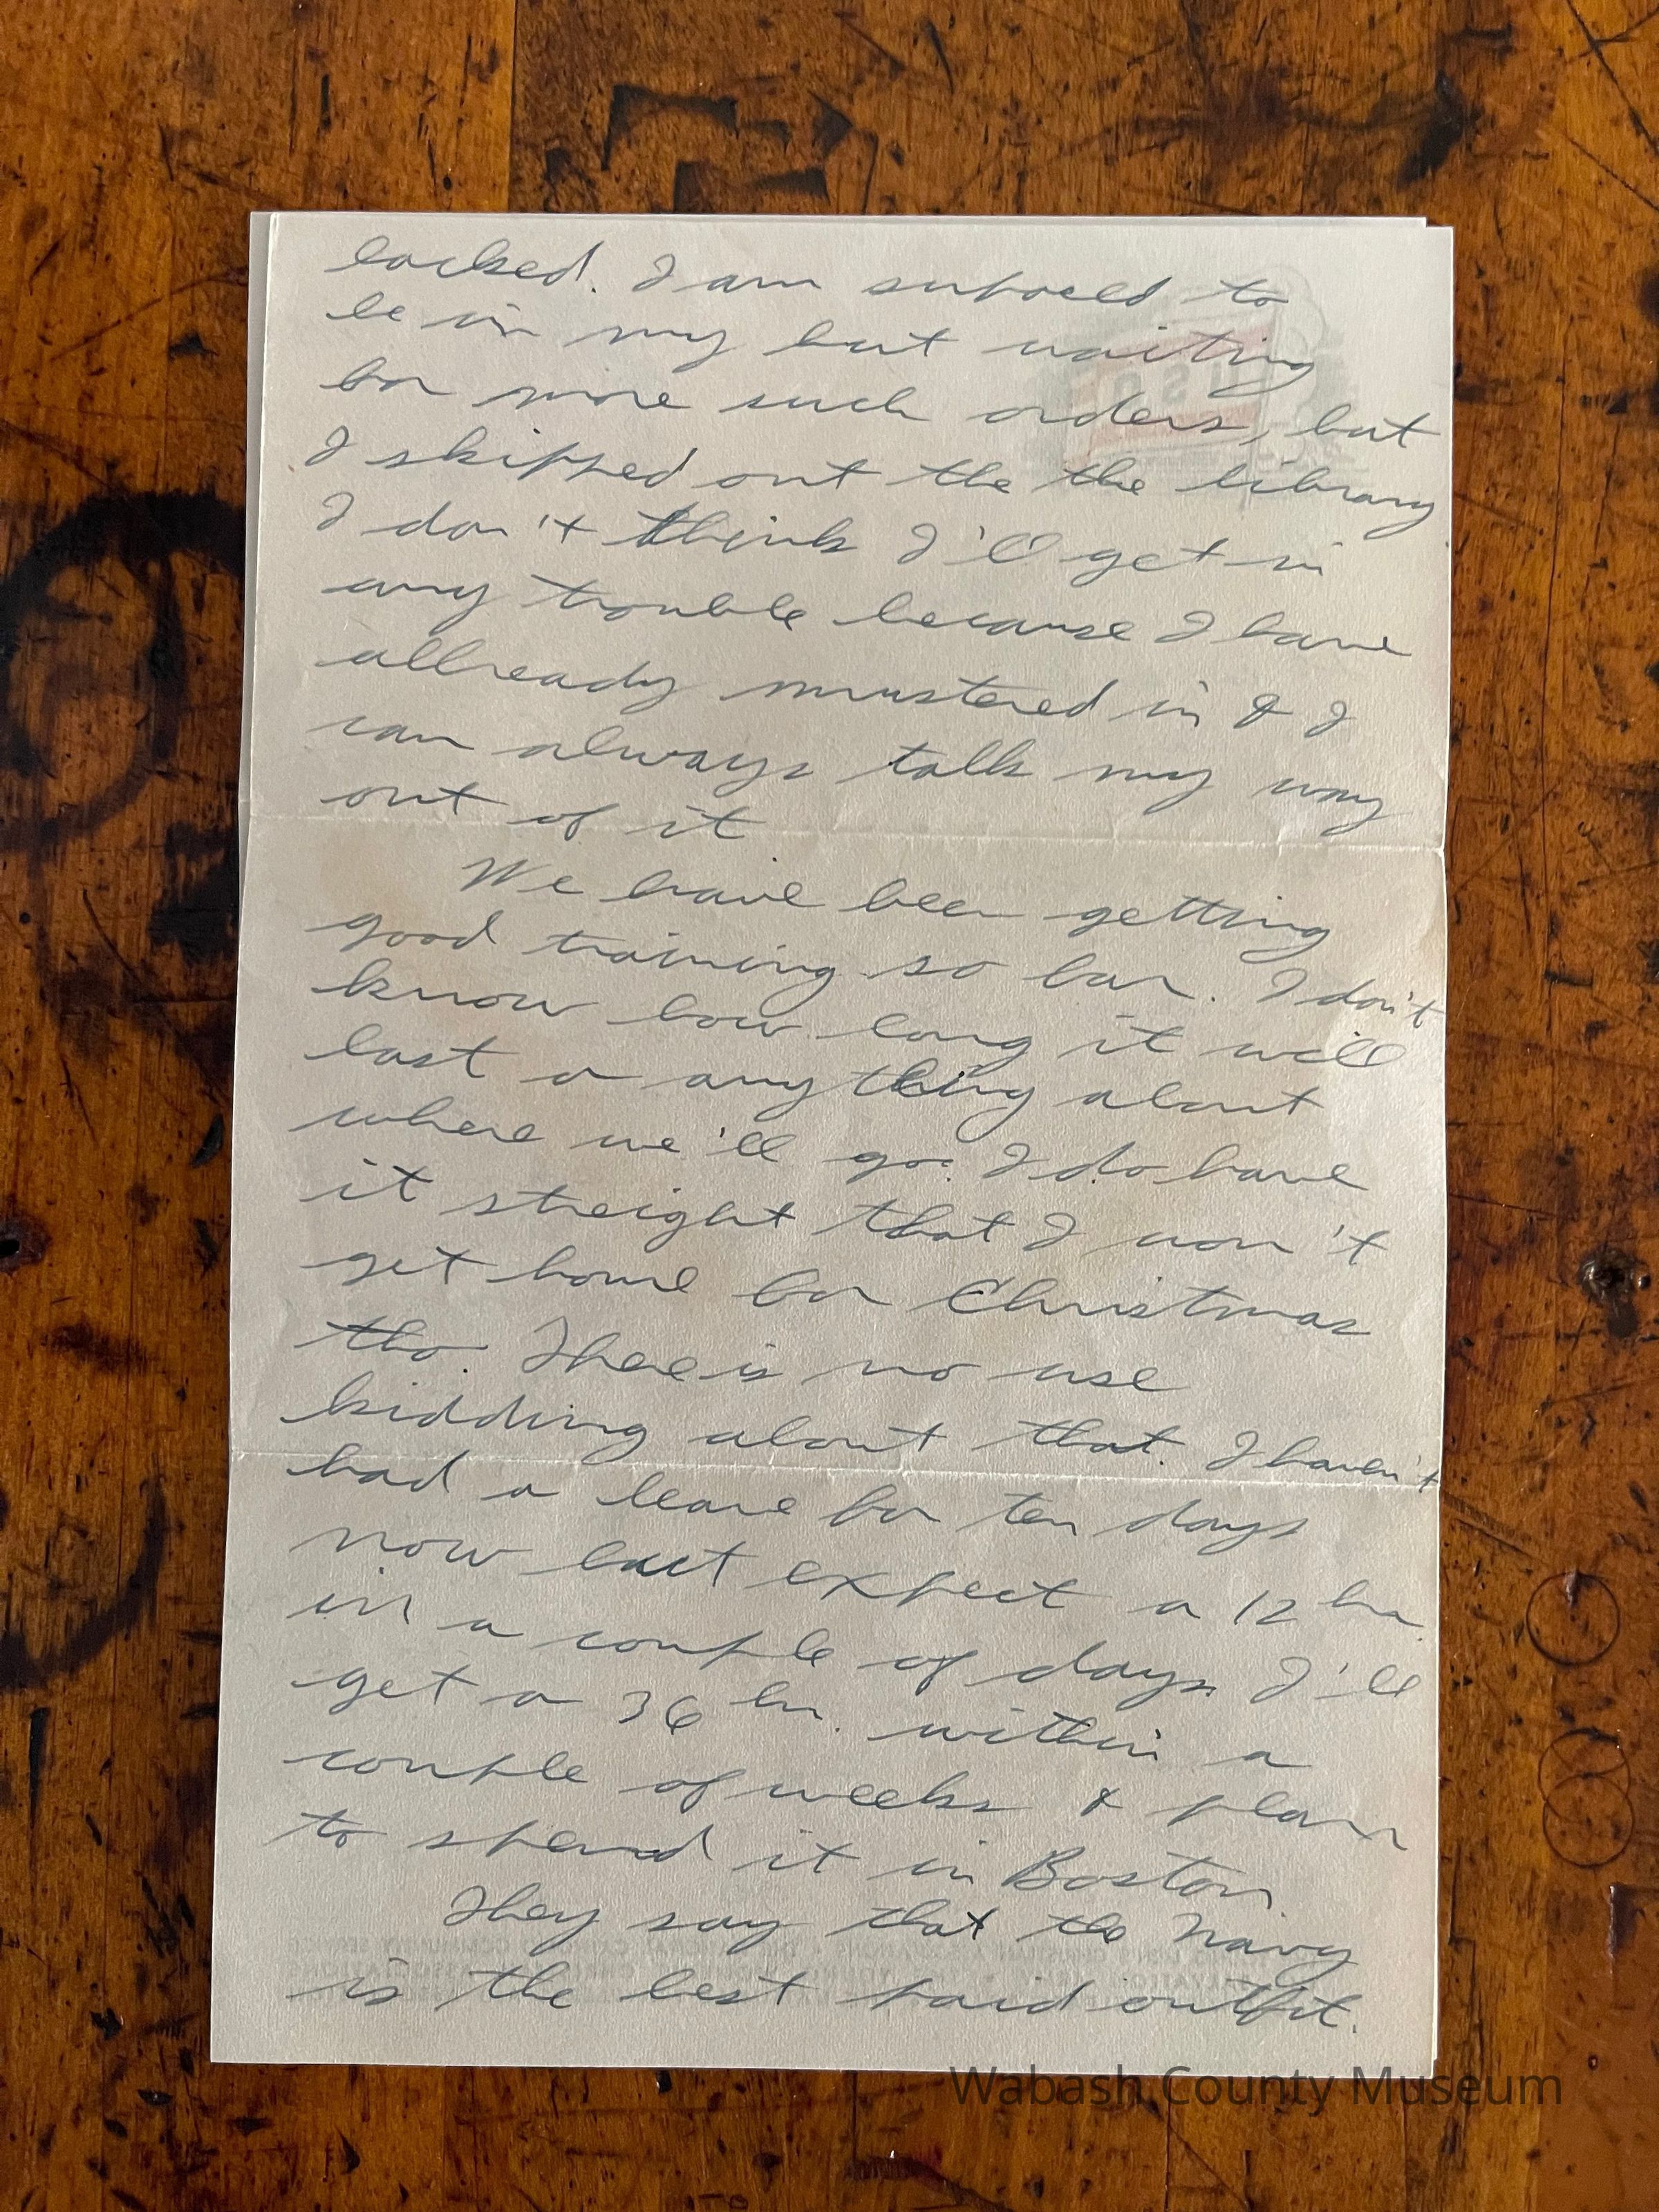 locked. I am suposed to
be in my hut waiting
for more such orders, but
I skipped out the the library
I don't think I'll get in
any trouble because I have
allready mustered in & I
can always talk my way
out of it
We have been getting
good training so far. I don't
know how long it will
last or any thing about
where we'll go. I do have
it streight that I won't
get home for Christmas
tho. There is no use
kidding about that. I haven't
had a leave for ten days
now but expect a 12 hr.
in a couple of days. I'll
get a 36 hr. within a
couple of weeks & plan
to spend it in Boston
They say that the Navy
is the best paid outfit.
Wabash County Museum